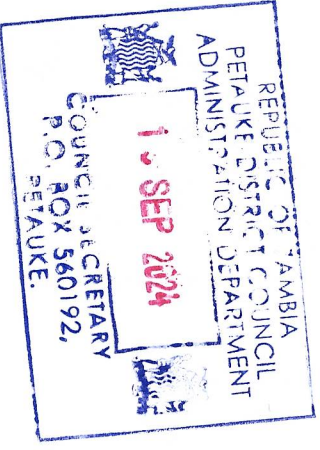 REPUBLIC OF ZAMBIA
PETAUKE DISTRICT COUNCIL
ADMINISTRATION DEPARTMENT
SEP 2024
COUNCIL SECRETARY
P.O. BOX 560192,
PETAUKE.